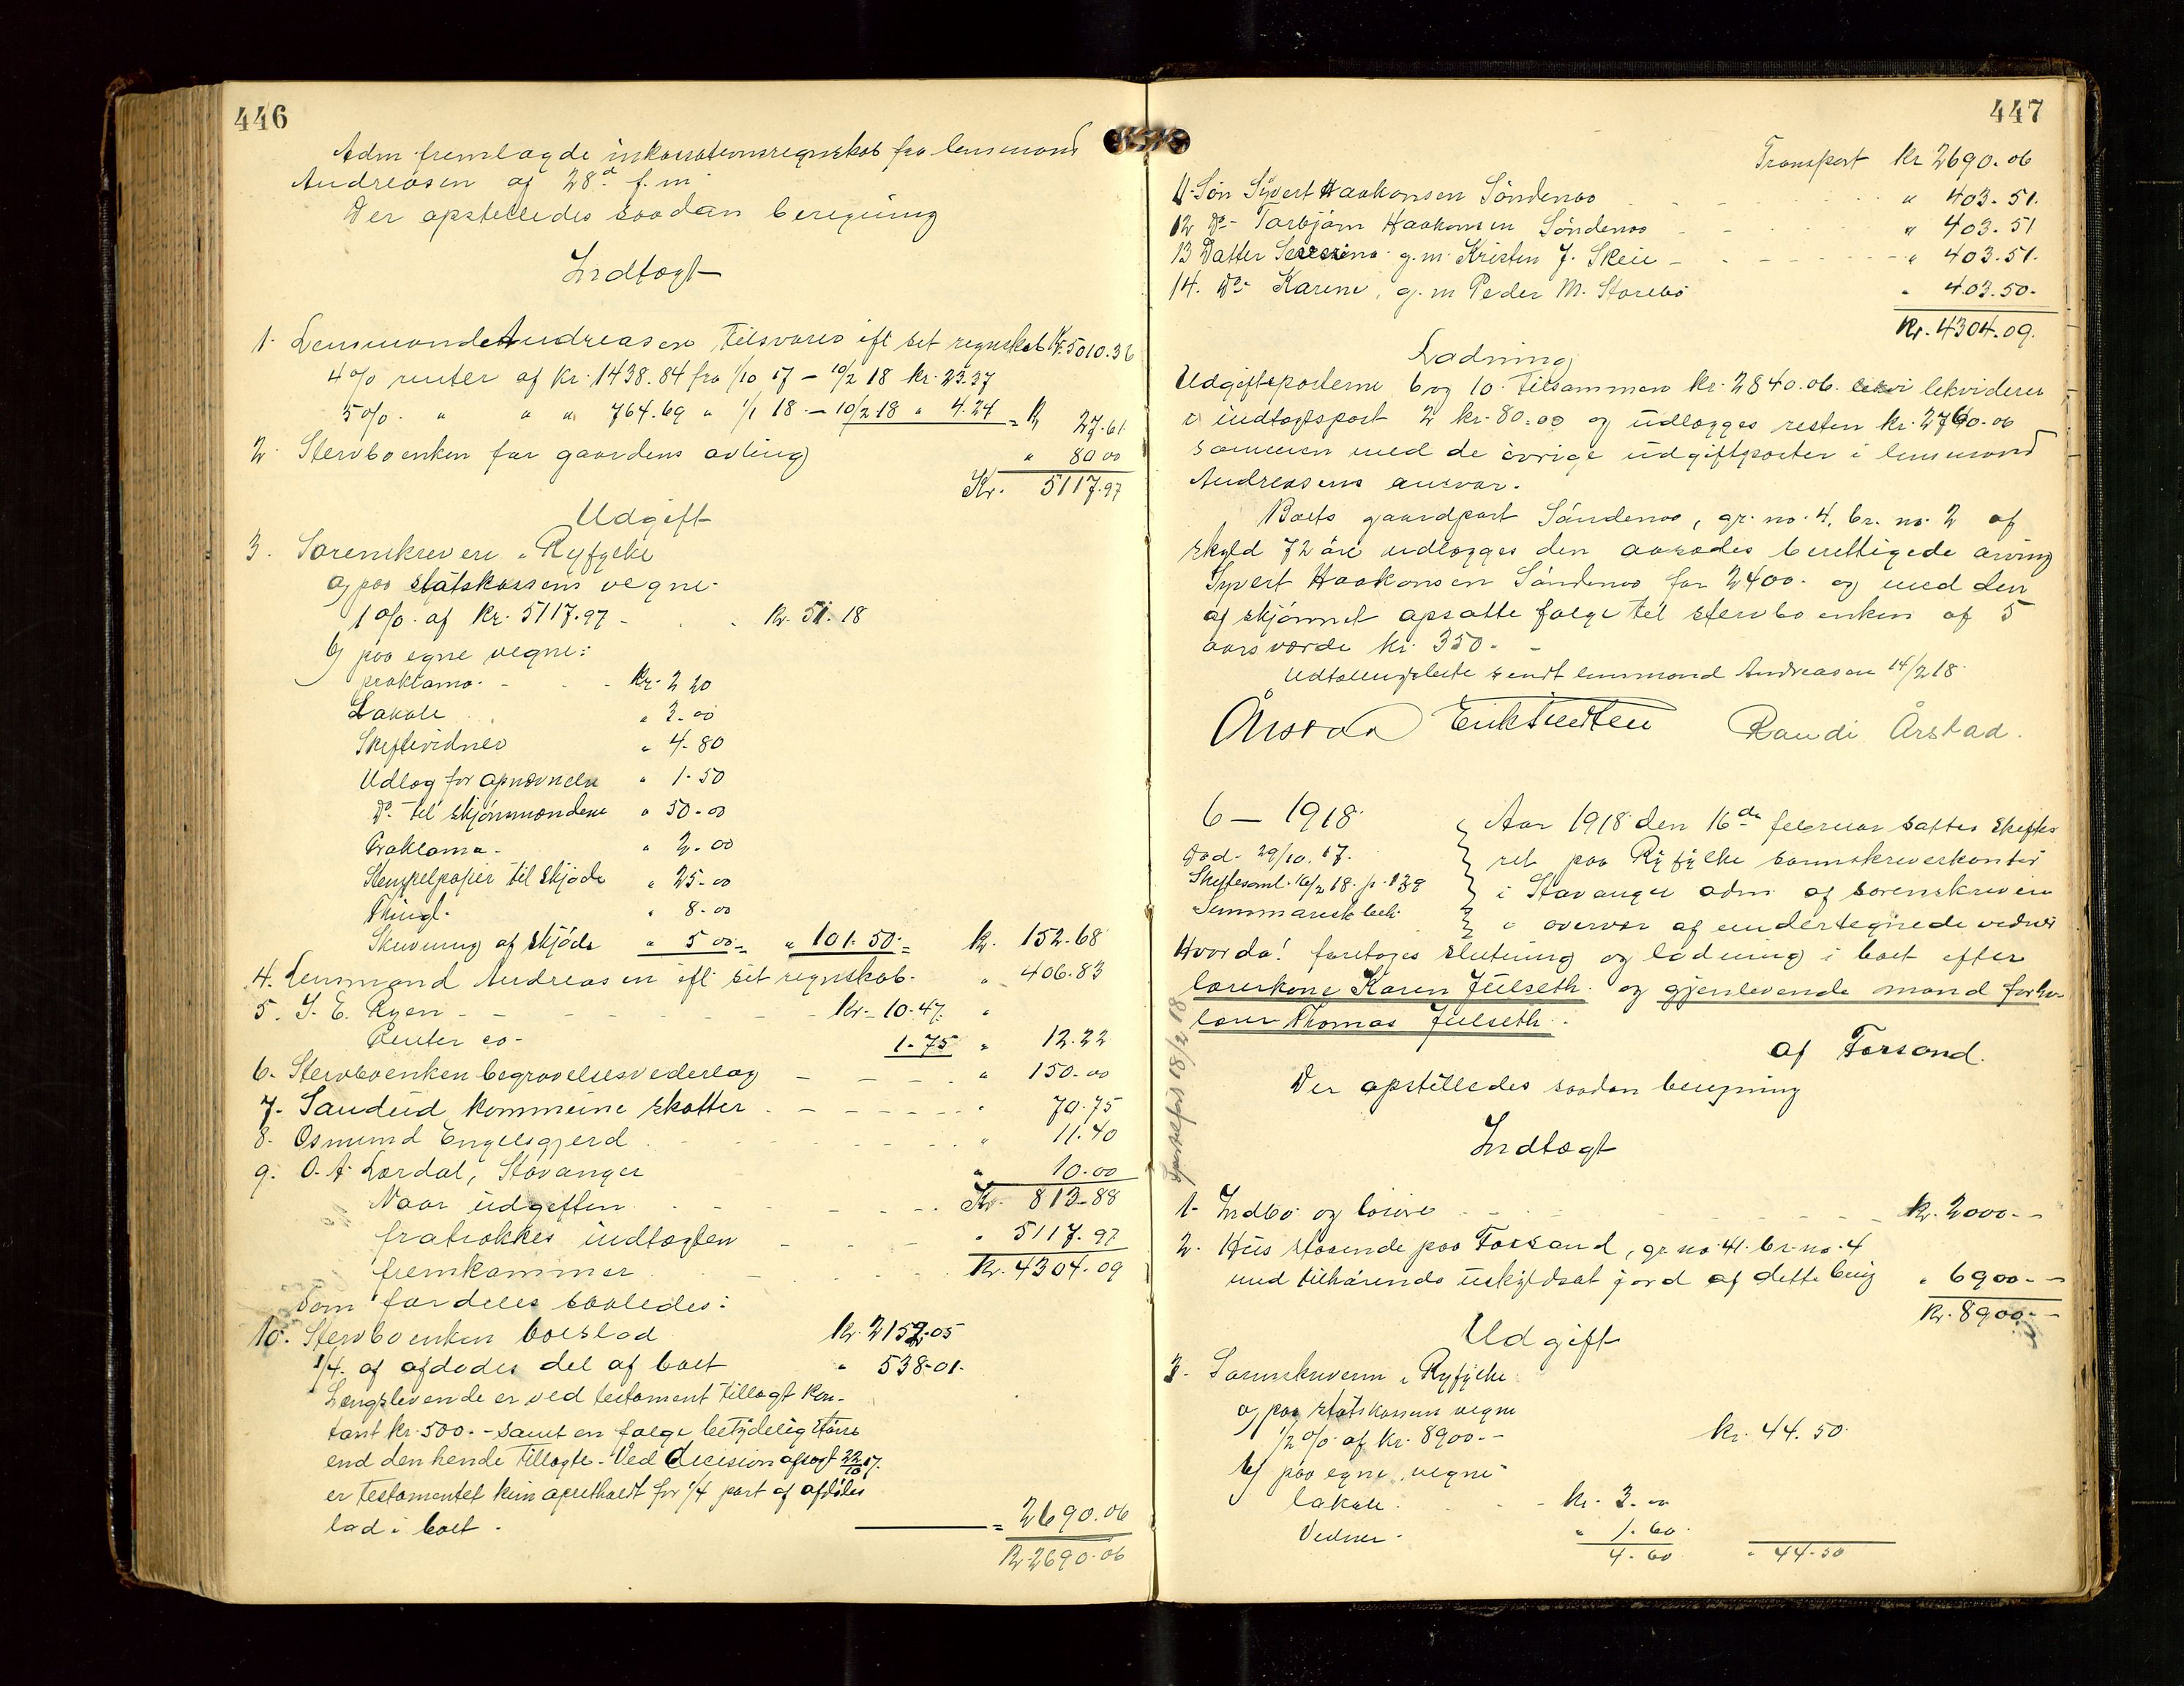 446
Adm fremlagde inkassationsregnskab fra lensmand
Andreasen af 28de f.m.
Der opstilledes saadan beregning
Indtægt
1. Lensmand Andreasen tilsvares ift. sit regnskab Kr. 5010.36
4% renter af Kr. 1438.84 fra 1/10 17 – 10/2 18 kr. 23.37
5% " " " 764.69 " 1/1 18 – 10/2 18 " 4.24 = Kr. 27.61
2. Stervboenken for gaardens avling " 80 00
Kr. 5117.97
Udgift
3. Sorenskriveren i Ryfylke
a) paa statskassens vegne.
1% af Kr. 5117.97 - Kr. 51.18
b) paa egne vegne:
proklama. - Kr. 2 20
Lokale " 3.00
Skiftevidner " 4.80
Udlæg for opnævnelse " 1.50
Do til skjønsmændene " 50.00
Proklama. " 2.00
Stempelpapir til skjøde " 25.00
Thingl. " 8.00
Skrivning af skjøde " 5 00 = " 101.50 = Kr. 152.68
4. Lensmand Andreasen ift. sit regnskab. " 406.83
5. T. E. Ryen - Kr. 10.47 "
Renter co - 1.75 " 12.22
6. Stervboenken begravelsesvederlag " 150.00
7. Sandeid kommune skatter " 70.75
8. Osmund Engelsgjerd " 11.40
9. O. A. Lordal, Stavanger " 10.00
Naar udgiften Kr. 813.88
fratrækkes indtægten " 5117.97
fremkommer Kr. 4304.09
som fordeles saaledes:
10. Stervboenken boeslod Kr. 2152.05
1/4 af afdødes del af boet " 538.01.
Længstlevende er ved testament tillagt kon-
tant kr. 500.- samt en følge betydelig større
end den hende tillagte. Ved decision afsagt 22/10 17.
er testamentet kun opretholdt for 1/4 part af afdødes
lod i boet. = 2690.06
Kr. 2690.06
447
Transport Kr 2690.06
11. Søn Syvert Haakonsen Søndenaa " 403.51.
12 Do Torbjørn Haakonsen Søndenaa " 403.51
13 Datter Severine g.m. Kristen J. Skeie " 403.51.
14. Do Karine, g.m Peder M. Storebø " 403.50.
Kr. 4304.09.
Lodning
Udgiftsposterne 6 og 10 tilsammen Kr. 2840.06. likvideres
i indtægtspost 2 kr. 80.00 og udlægges resten kr. 2760.06
sammen med de øvrige udgiftsposter i lensmand
Andreasens ansvar.
Boets gaardpart Søndenaa, gr. no. 4, br. no. 2 af
skyld 72 øre udlægges den aasædes berettigede arving
Syvert Haakonsen Søndenaa for 2400.- og med den
af skjønnet opsatte følge til stervboenken af 5
aars værde kr. 350.-
Udtællingsliste sendt lensmand Andreasen 14/2 18.
Årstad Erik Tuedten Randi Årstad.
6 – 1918.
Død. 29/10. 17.
Skiftesaml. 16/2 18. p. 138
Summarisk beh.
Aar 1918 den 16de februar sattes skifte-
ret paa Ryfylke sorenskriverkontor
i Stavanger adm. af sorenskriveren
i overvær af undertegnede vidner
Hvorda! foretoges slutning og lodning i boet efter
lærerkone Karen Julseth og gjenlevende mand forhv.
lærer Thomas Julseth.
af Forsand.
18/2 18
Der opstilledes saadan beregning
Indtægt
1. Indbo og løsøre Kr. 2000.-
2. Hus staaende paa Forsand, gr. no. 41. br. no. 4
med tilhørende uskyldsat jord af dette brug " 6900.-
Kr. 8900.-
Udgift
3. Sorenskriveren i Ryfylke
a) paa statskassens vegne
1/2 % af Kr. 8900.- kr. 44.50
b) paa egne vegne
lokale. - kr. 3.00
Vidner. " 1.60.
4.60 " 44.50